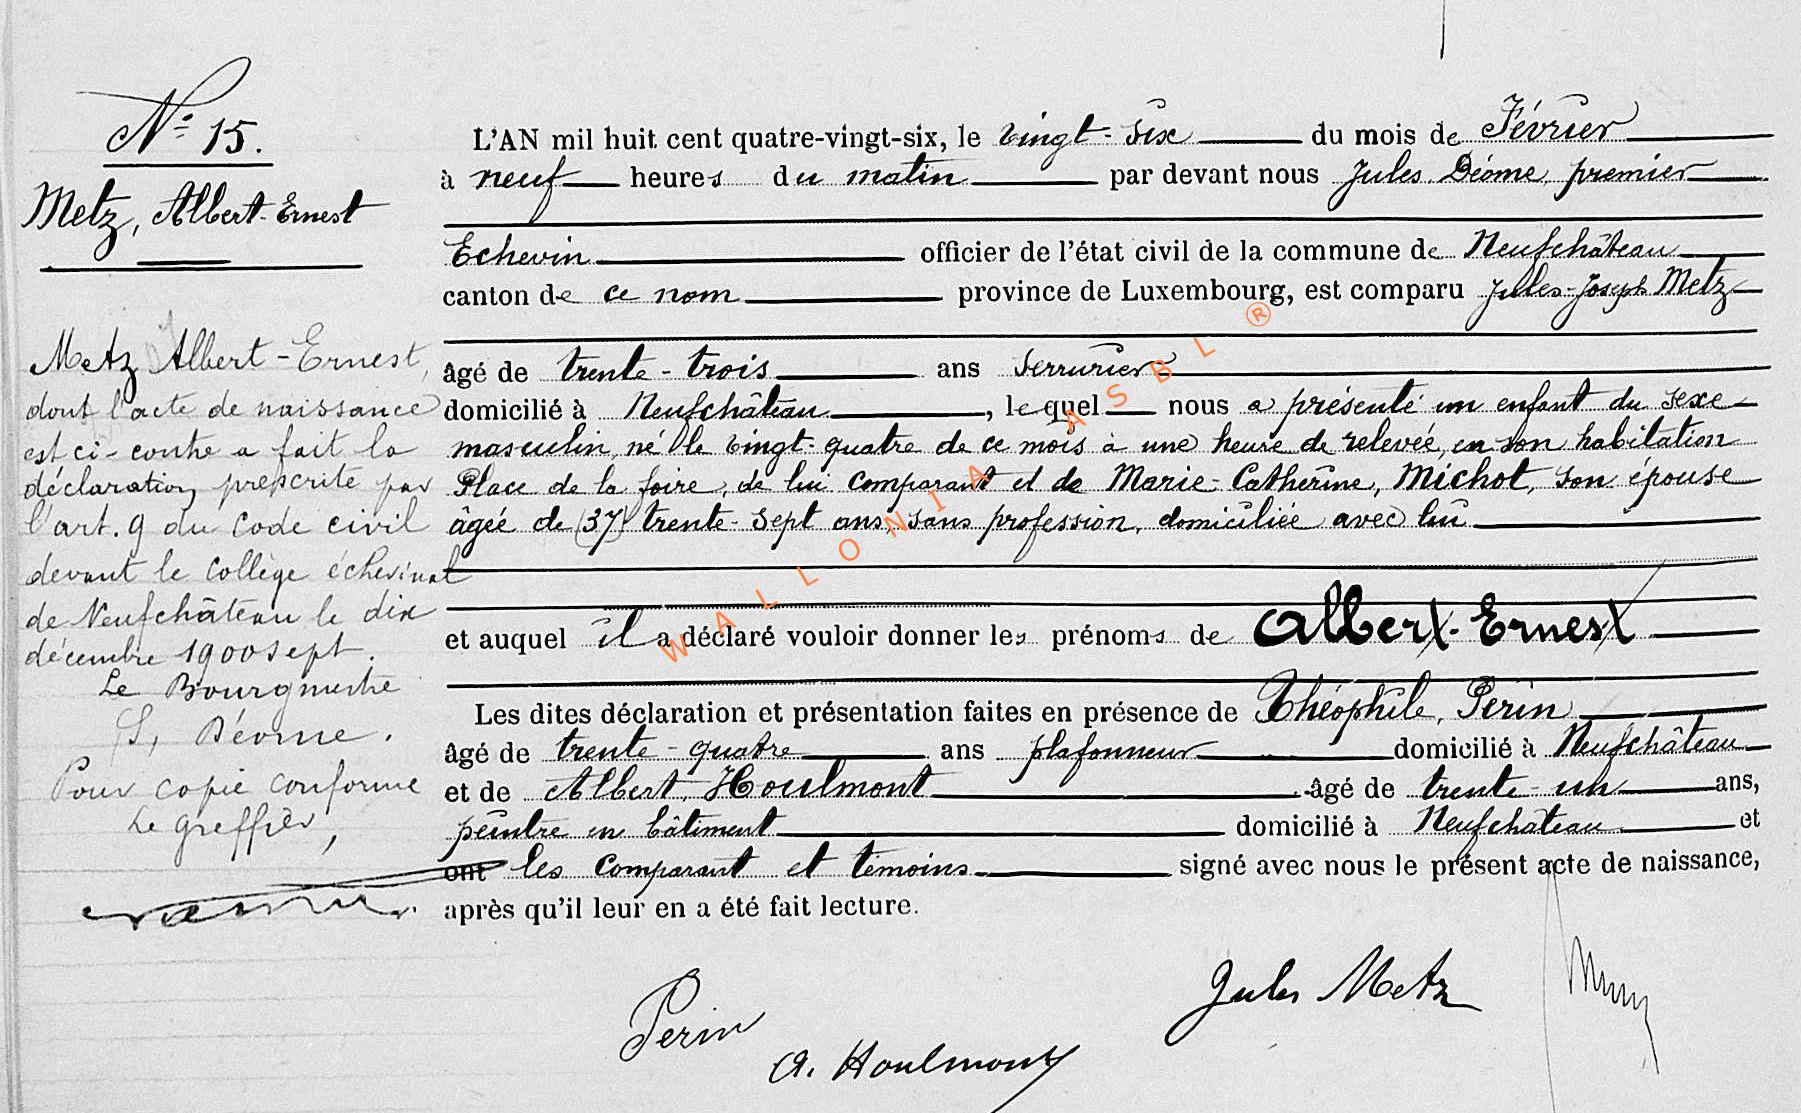 N° 15.
Metz, Albert-Ernest
Metz Albert-Ernest,
dont l'acte de naissance
est ci-contre a fait la
déclaration prescrite par
l'art. 9 du code civil
devant le collège échevinal
de Neufchâteau le dix
décembre 1900 sept.
Le Bourgmestre
Déome.
Pour copie conforme
Le greffier,
L'AN mil huit cent quatre-vingt-six, le vingt-six du mois de Février
à neuf heures du matin par devant nous Jules Déome, premier
Echevin officier de l'état civil de la commune de Neufchâteau
canton de ce nom province de Luxembourg, est comparu Jules-Joseph Metz
âgé de trente-trois ans serrurier
domicilié à Neufchâteau, lequel nous a présenté un enfant du sexe
masculin, né le vingt-quatre de ce mois à une heure de relevée, en son habitation
Place de la foire, de lui comparant et de Marie-Catherine, Michot, son épouse
âgée de (37) trente-sept ans, sans profession, domiciliée avec lui
et auquel il a déclaré vouloir donner les prénoms de Albert-Ernest
Les dites déclaration et présentation faites en présence de Théophile, Perin
âgé de trente-quatre ans plafonneur domicilié à Neufchâteau
et de Albert, Houlmont âgé de trente-un ans,
peintre en bâtiment domicilié à Neufchâteau et
ont les comparant et témoins signé avec nous le présent acte de naissance,
après qu'il leur en a été fait lecture.
Jules Metz
Perin
A. Houlmont
WALLONIA ASBL ®